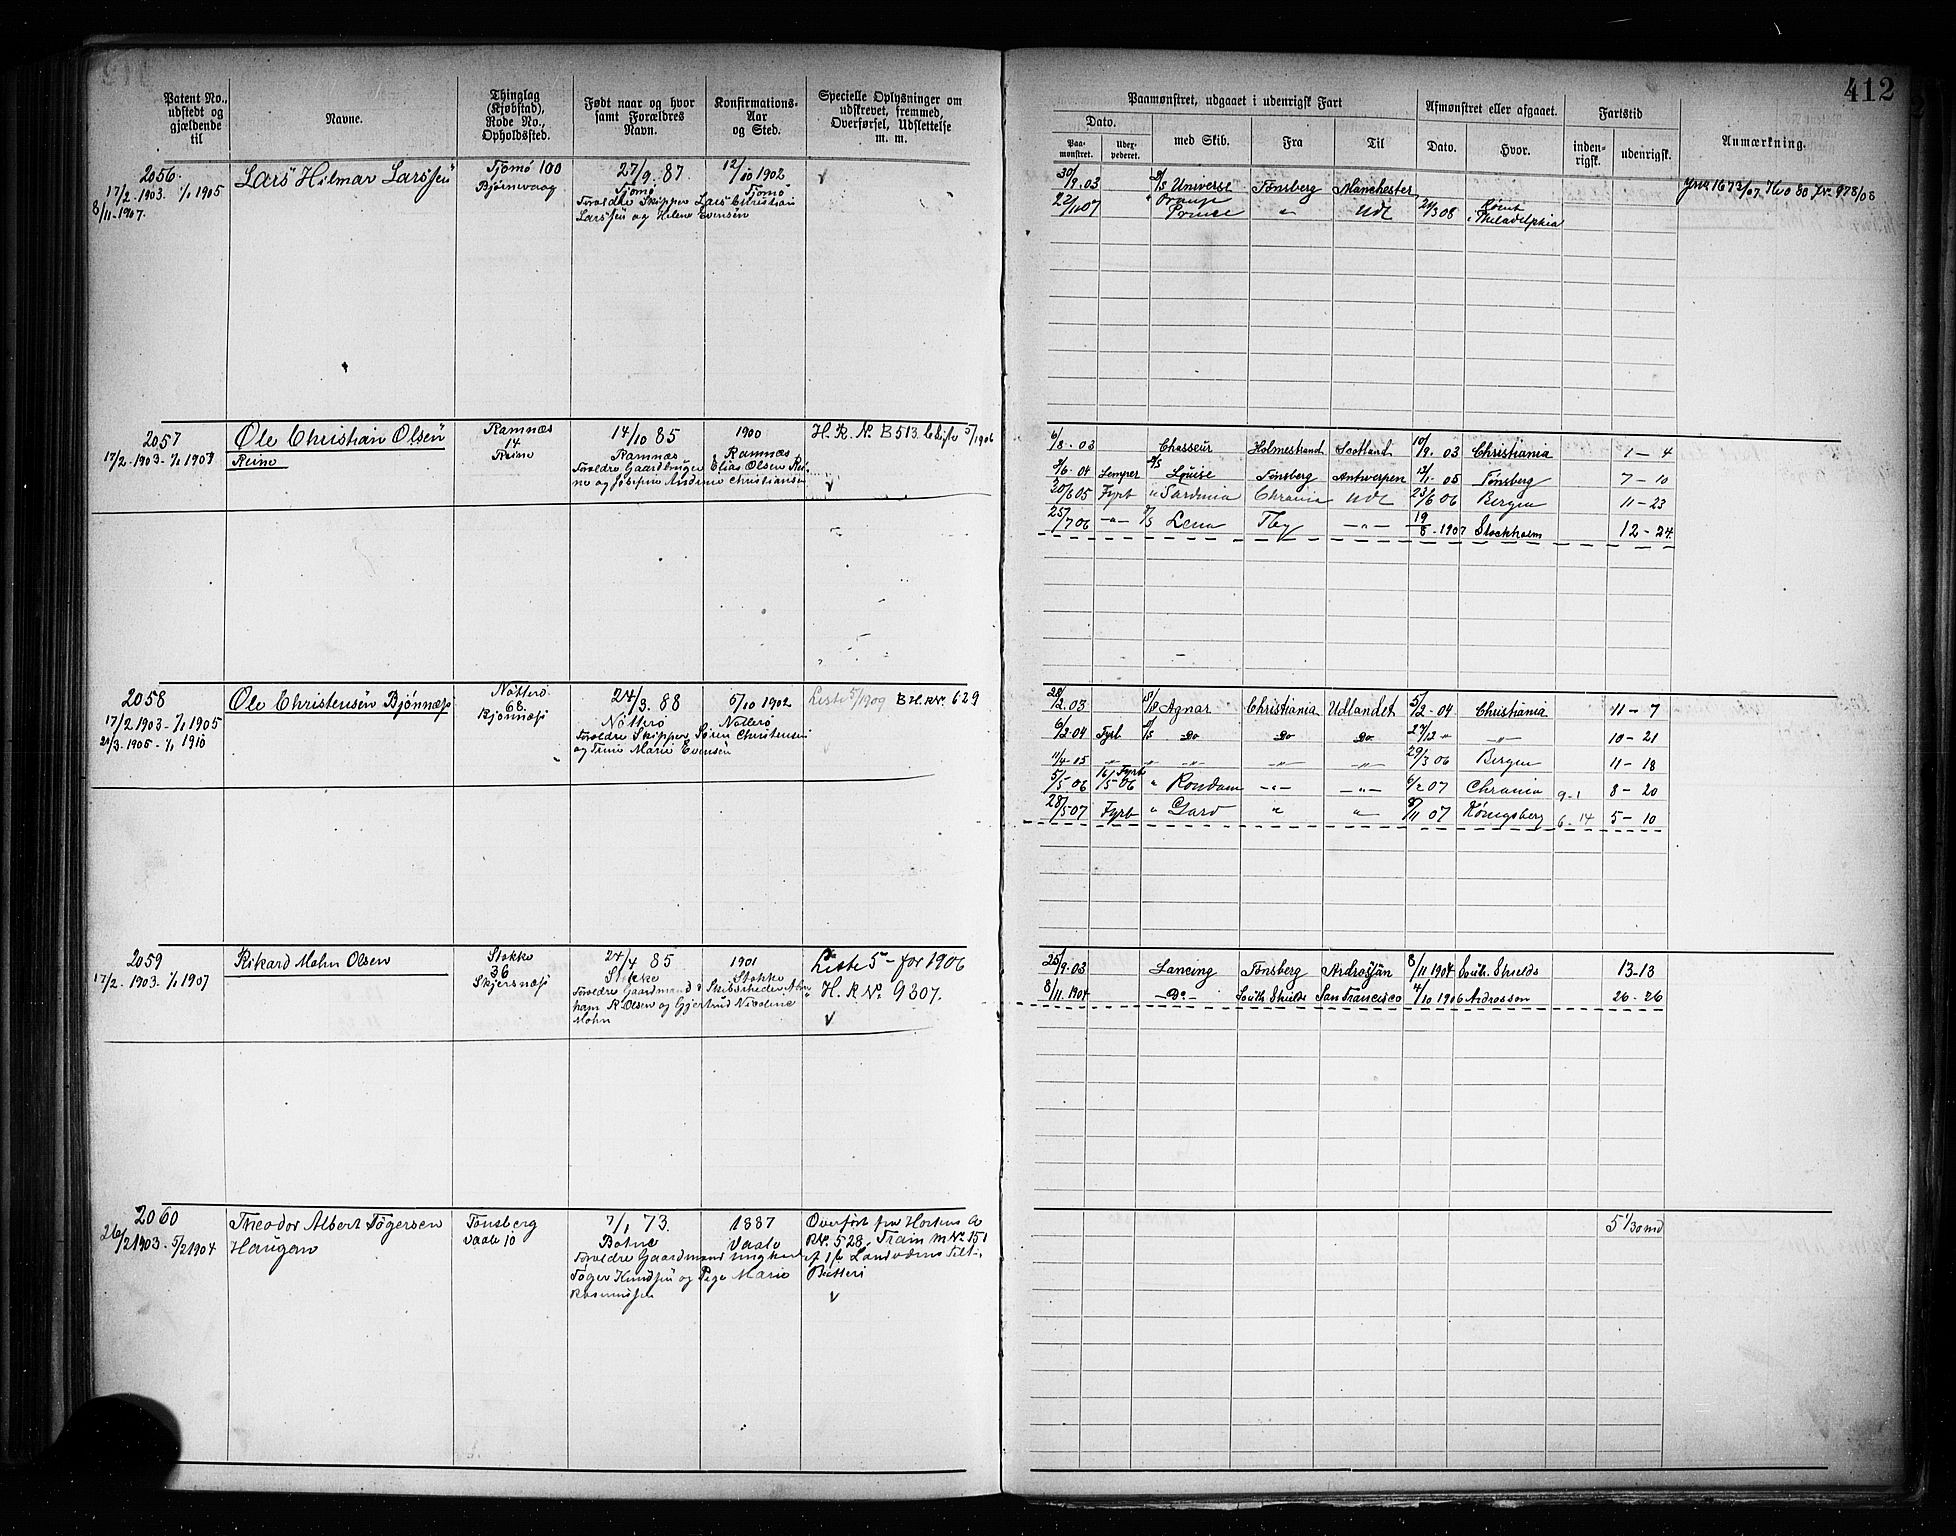 412
Patent No., udstedt og gjældende til
Navne.
Thinglag (Kjøbstad), Rode No., Opholdssted.
Født naar og hvor samt Forældres Navn.
Konfirmations-Aar og Sted.
Specielle Oplysninger om udskrevet, fremmed, Overførsel, Udslettelse m. m.
Paamønstret, udgaaet i udenrigsk Fart
Afmønstret eller afgaaet.
Fartstid
Dato.
Paa-mønstret.
med Skib.
Fra
Til
Dato.
Hvor.
inden-rigsk.
udenrigsk.
Anmærkning.
2056.
17/2-1903. 1/1 1905
8/11-1907.
Lars Hilmar Larssen
Tjømø 100
Bjørnevaag
27/9. 87.
Tjømø
Foreldre Skipper Lars Christian
Larssen og Helene Evensen
12/10 1902
Tjømø
30/9.03 D/S Universe Tønsberg Manchester
22/11 07 " Orange Prince " Udl 24/3 08 Rømt i Philadelphia
2057
17/2-1903-1/1 1907
Ole Christian Olsen
Reine
Ramnæs
14
Reine
14/10 85
Ramnæs
Foreldre Gaardbruger Elias Olsen Rei-
ne og Josefine Andrine Christiansen
1900
Ramnæs
H. R. No. B 513. Liste 5/1906
6/8-03 Chasseur Holmestrand Scotland 10/9.03 Christiania 1-4
2/6-04 Semper D/S Louise Tønsberg Antwerpen 13/1-05 Tønsberg 7-10
20/6 05 Fyrb " Sardinia Chrania Udl 23/6 06 Bergen 11-23
25/7 06 -"- D/S Lena Tbg -"- 19/8-1907 Stockholm 12-24
2058
17/2-1903-1/1 1905
21/3-1905-1/1 1910
Ole Christensen Bjønnæs
Nøtterø
68.
Bjønnæs
24/3. 88
Nøtterø
Foreldre Skipper Søren Christensen
og Trine Marie Evensen
5/10 1902
Nøtterø
Liste 5/1909 B H.R.No. 629
28/2.03 D/S Agnar Christiania Udlandet 5/2-04 Christiania 11-7
6/2 04 Fyrb D/S Do Do Do 27/12 " -"- 10-21
11/4-05 -"- -"- -"- -"- -"- 29/3 06 Bergen 11-18
5/5-06 16/5 06 Fyrb " Rondane -"- -"- 6/2 07 Chrania 9-1 8-20
28/5 07 Fyrb " Gard " " 8/11 07 Königsberg 6-14 5-10
2059
17/2-1903-1/1 1907
Rikard Mohn Olsen
Stokke
36
Skjersnæs
24/4 85
Stokke
Foreldre Gaardmand & Skibsrheder Abra-
ham R. Olsen og Gjertrud Nicoline
Mohn
1901
Stokke
Liste 5- for 1906
H. R No. 9307.
25/9.03 Lancing Tønsberg Ardrossan 8/11 1904 South Shields 13-13
8/11 1904 -Do- South Shields San Francisco 4/10 1906 Ardrossan 26-26
2060
26/2 1903-5/2 1904
Theodor Albert Tøgersen
Haugan
Tønsberg
Vaale 10
7/1 73.
Botne
Foreldre Gaardmand Ungkarl
Tøger Knudsen og Pige Marie
Rasmussen
1887
Vaale
Overført fra Horten A
R No. 528, Train m No. 151
af 1ste Landværns Felt-
Batteri
5 1/30 md